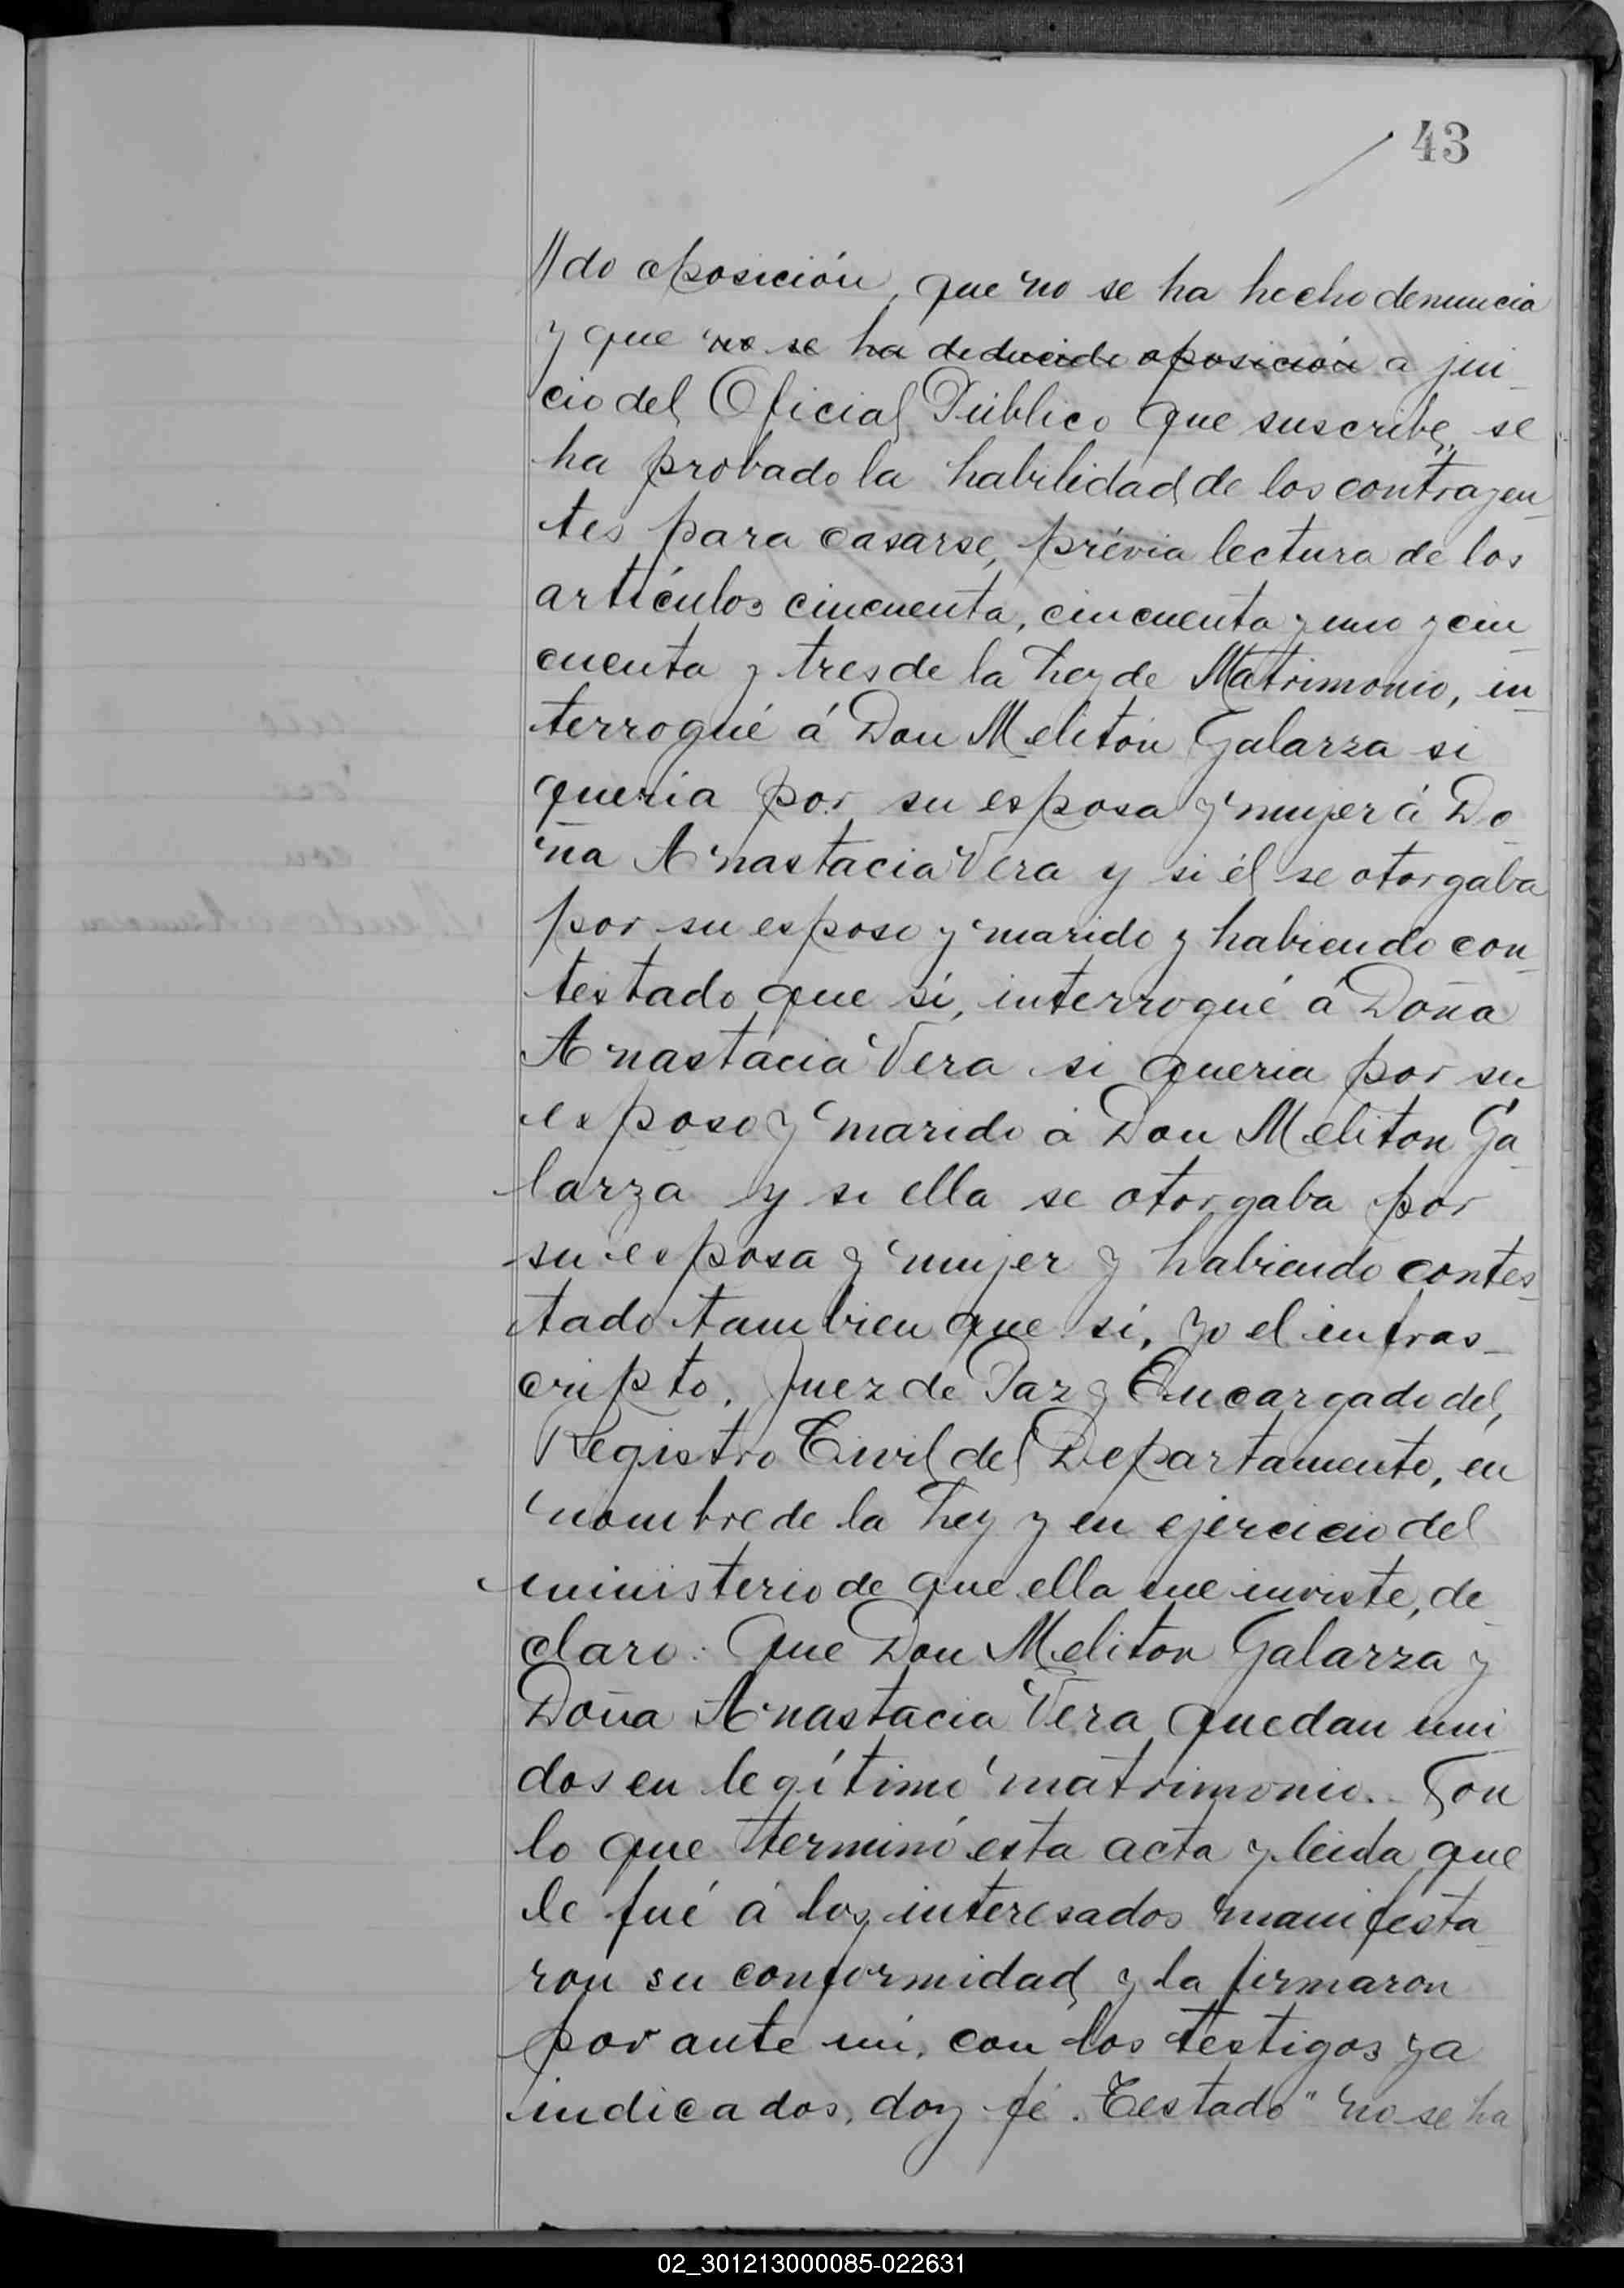 43
//do oposición, que no se ha hecho denuncia
y que no se ha deducido oposición a jui_
cio del Oficial Público que suscribe, se
ha probado la habilidad de los contrayen_
tes para casarse, prévia lectura de los
artículos cincuenta, cincuenta y uno y cin_
cuenta y tres de la Ley de Matrimonio, in_
terrogué á Don Melitón Galarza si
queria por su esposa y mujer á Do_
ña Anastacia Vera y si él se otorgaba
por su esposo y marido y habiendo con_
testado que sí, interrogué á Doña
Anastacia Vera si queria por su
esposo y marido á Don Meliton Ga_
larza y si ella se otorgaba por
su esposa y mujer y habiendo contes_
tado tambien que sí, yo el infras_
cripto, Juez de Paz y Encargado del
Registro Civil del Departamento, en
nombre de la Ley y en ejercicio del
ministerio de que ella me inviste, de_
claro: Que Don Meliton Galarza y
Doña Anastacia Vera quedan uni_
dos en legítimo matrimonio. Con
lo que terminó esta acta y leida que
le fué á los interesados manifesta_
ron su conformidad y la firmaron
por ante mi, con los testigos ya
indicados, doy fé. Testado "no se ha
02_301213000085-022631